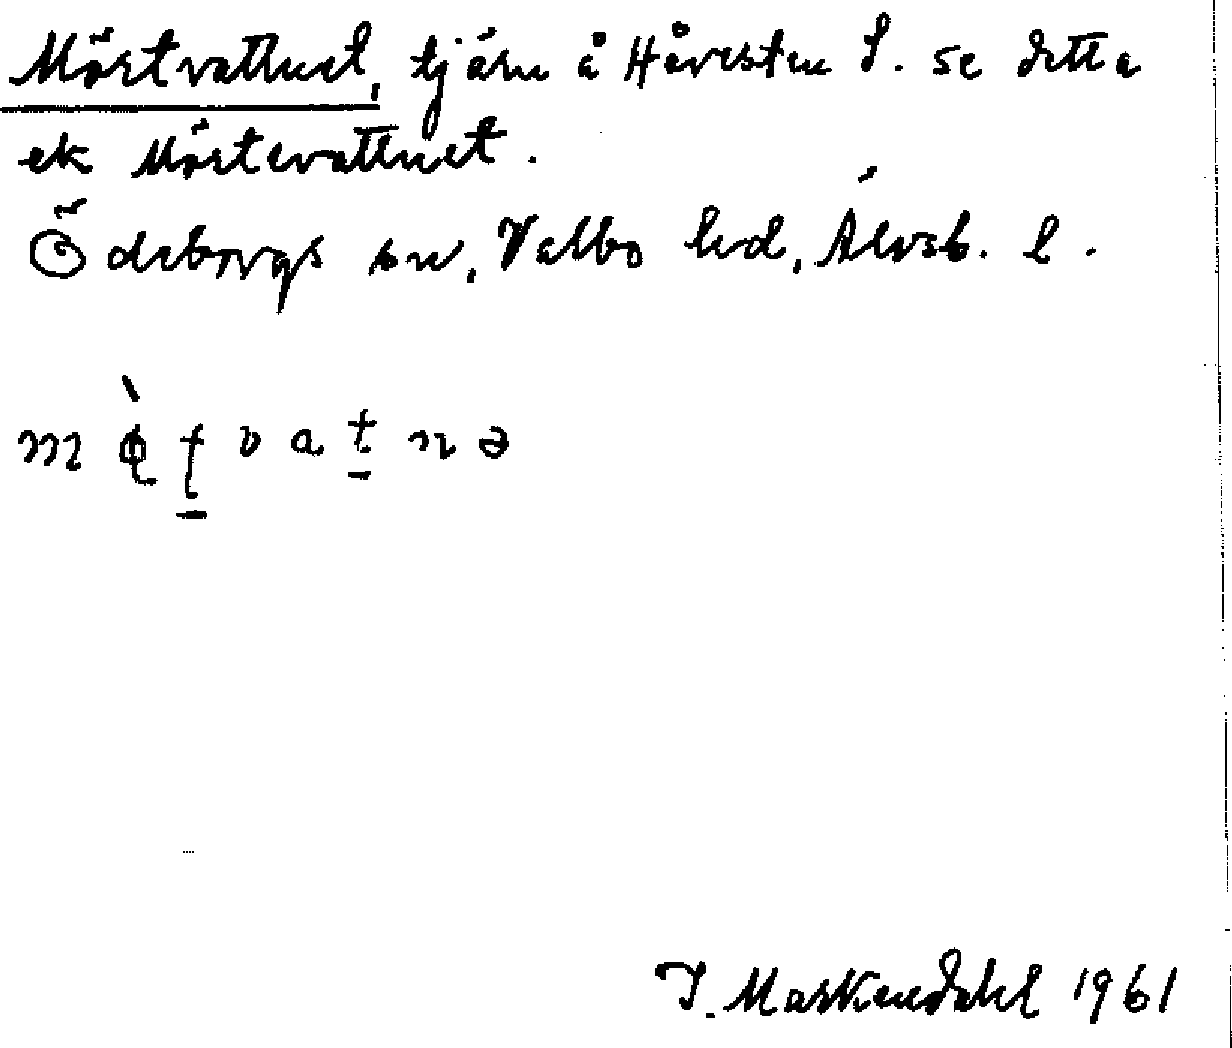 Mörtvattnet, tjärn å Håvesten S. se detta
ek Mörtevattnet.
Ödeborgs sn, Valbo hd, Älvsb. l.
1961